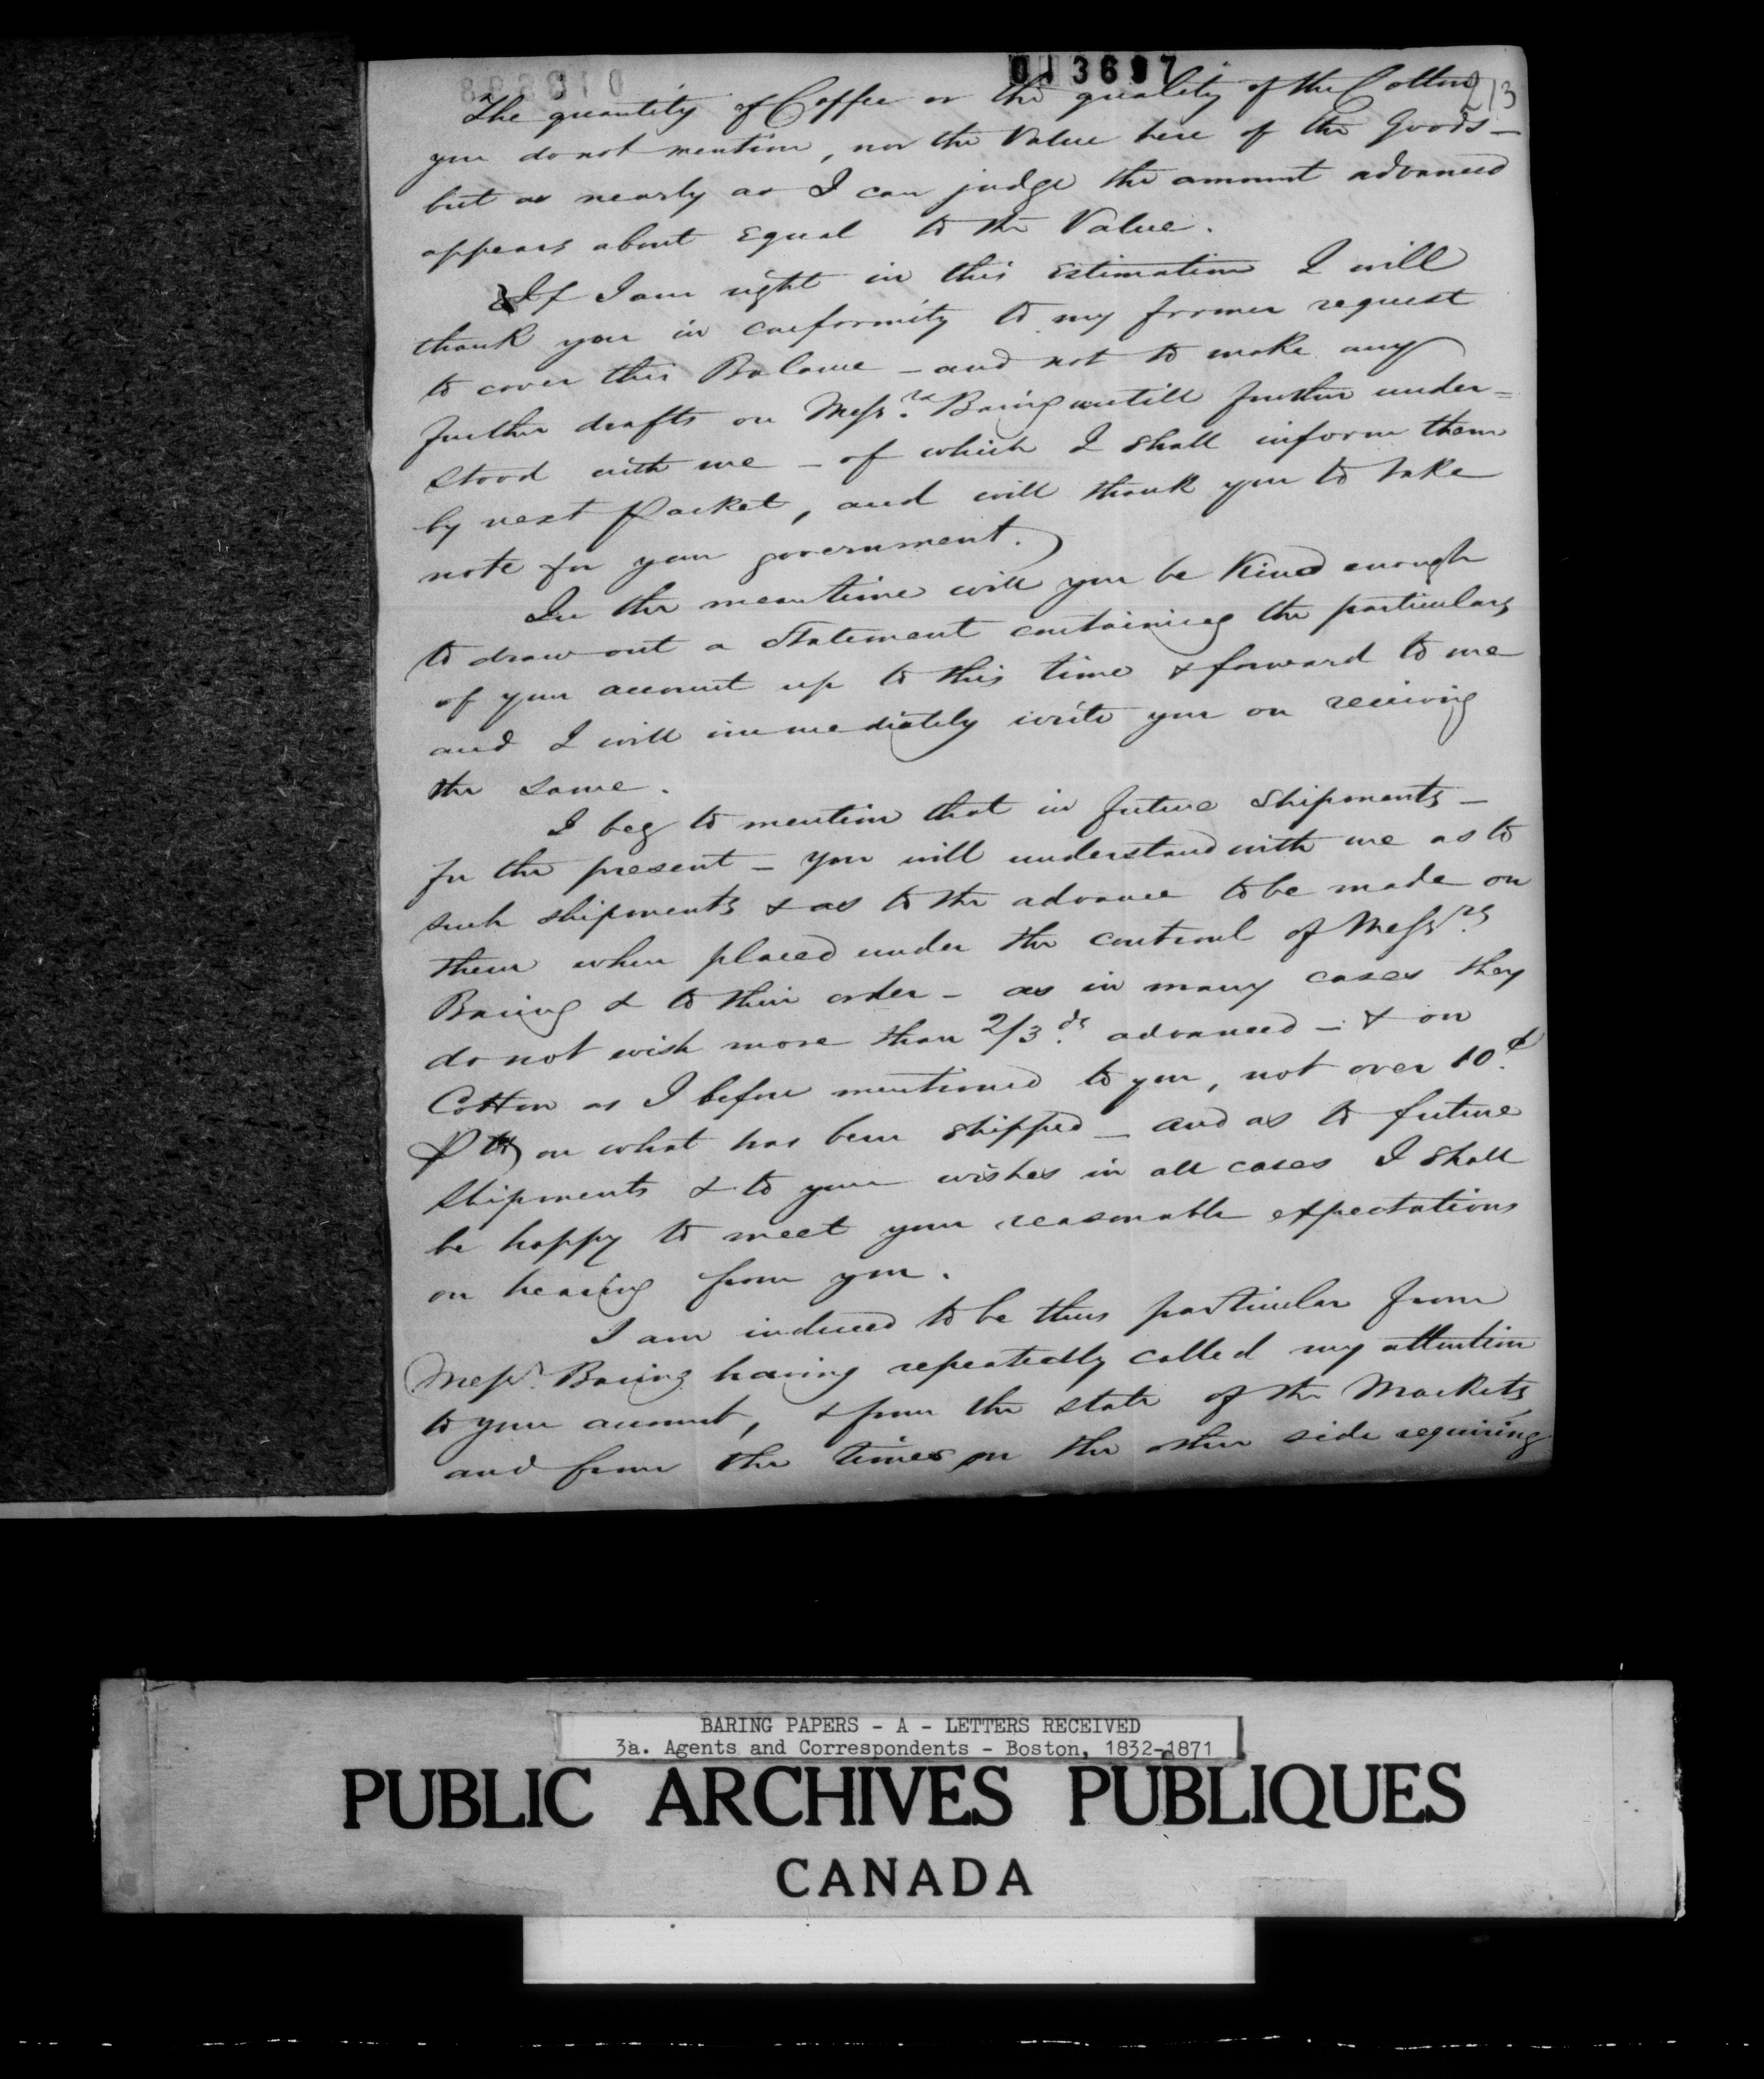 013697
213
The quantity of Coffee or the quality of the Cotton
you do not mention, nor the Value here of the Goods —
but as nearly as I can judge the amount advanced
appears about Equal to the Value.
If I am right in this Estimation I will
thank you in conformity to my former request
to cover this Balance — and not to make any
further drafts on Messrs. Baring untill further under=
stood with me — of which I shall inform them
by next Packet, and will thank you to take
note for your government.
In the meantime will you be Kind enough
to draw out a Statement containing the particulars
of your account up to this time & forward to me
and I will immediately write you on receiving
the same.
I beg to mention that in future Shipments —
for the present — you will understand with me as to
such shipments & as to the advance to be made on
them when placed under the controul of Messrs.
Baring & to their order — as in many cases they
do not wish more than 2/3ds. advanced — & on
Cotton as I before mentioned to you, not over 10d.
P lb on what has been shipped — and as to future
Shipments & to your wishes in all cases I shall
be happy to meet your reasonable expectations
on hearing from you.
I am induced to be thus particular from
Messrs. Baring having repeatedly called my attention
to your account, & from the state of the Markets
and from the times on the other side requiring
BARING PAPERS - A - LETTERS RECEIVED
3a. Agents and Correspondents - Boston, 1832-1871
PUBLIC ARCHIVES PUBLIQUES
CANADA